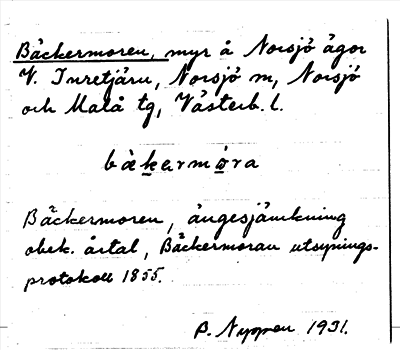 Bäckermoren, myr å Norsjö ägor
V. Inretjärn, Norsjö sn, Norsjö
och Malå tg, Västerb. l.
bàkermǫra
Bäckermoren, ängesjämkning
obek. årtal, Bäckermoran utsynings-
protokoll 1855.
B. Nyman 1931.